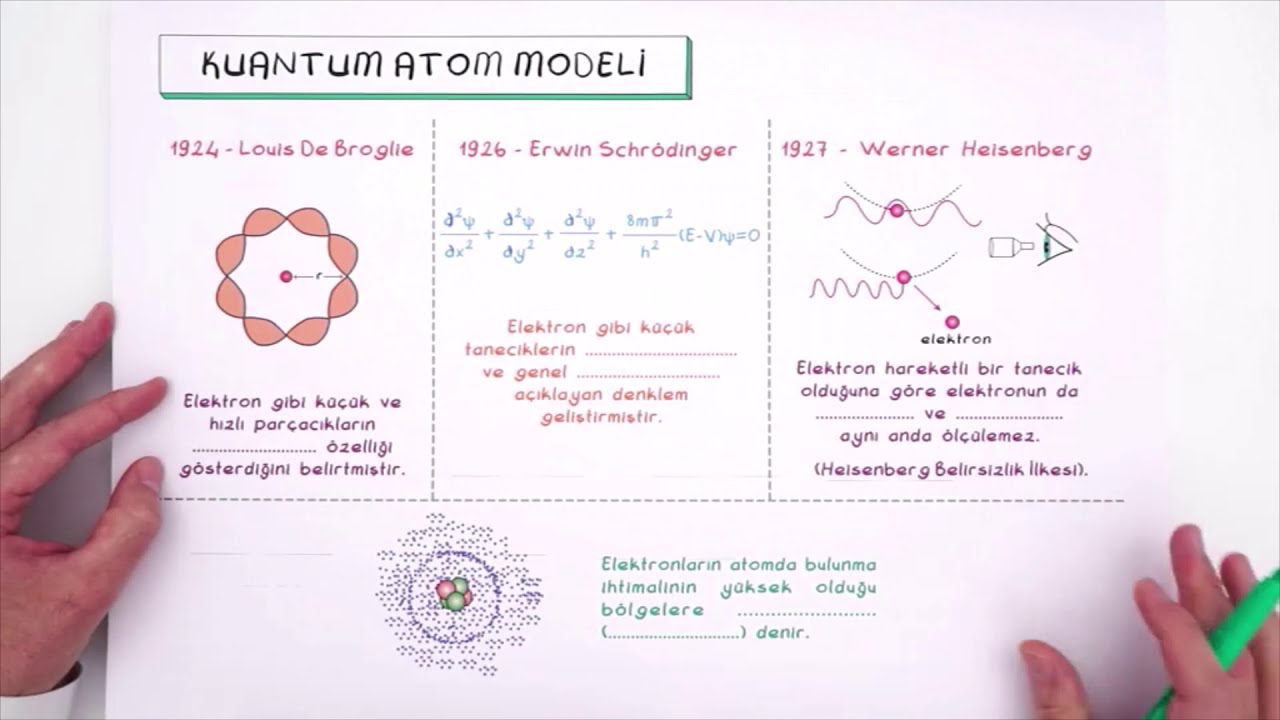 KUANTUM ATOM MODELİ
1924 - Louis De Broglie
r
Elektron gibi küçük ve
hızlı parçacıkların
............................ özelliği
gösterdiğini belirtmiştir.
1926 - Erwin Schrödinger
∂²ψ/∂x² + ∂²ψ/∂y² + ∂²ψ/∂z² + 8mπ²/h² (E-V)ψ=0
Elektron gibi küçük
taneciklerin ...................................
ve genel .................................
açıklayan denklem
geliştirmiştir.
1927 - Werner Heisenberg
elektron
Elektron hareketli bir tanecik
olduğuna göre elektronun da
...................... ve ........................
aynı anda ölçülemez.
(Heisenberg Belirsizlik İlkesi).
Elektronların atomda bulunma
ihtimalinin yüksek olduğu
bölgelere ................................
(..............................) denir.